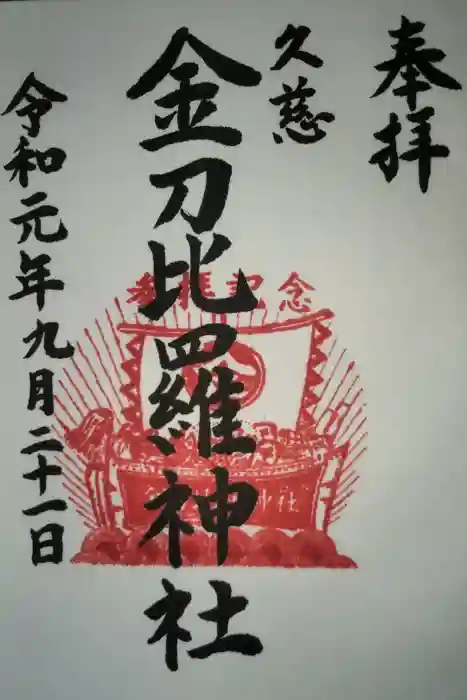 奉拝
久慈
金刀比羅神社
令和元年九月二十一日
参拝記念